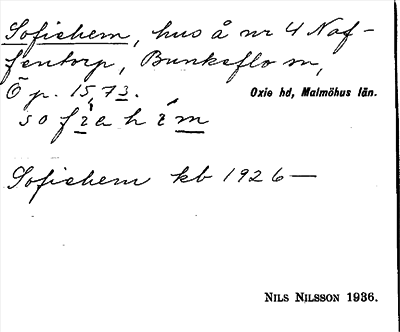 Sofiehem, hus å nr 4 Naf-
fentorp, Bunkeflo sn,
Ö p. 15, 73.
Oxie hd, Malmöhus län.
Sofiehem kb 1926—
NILS NILSSON 1936.